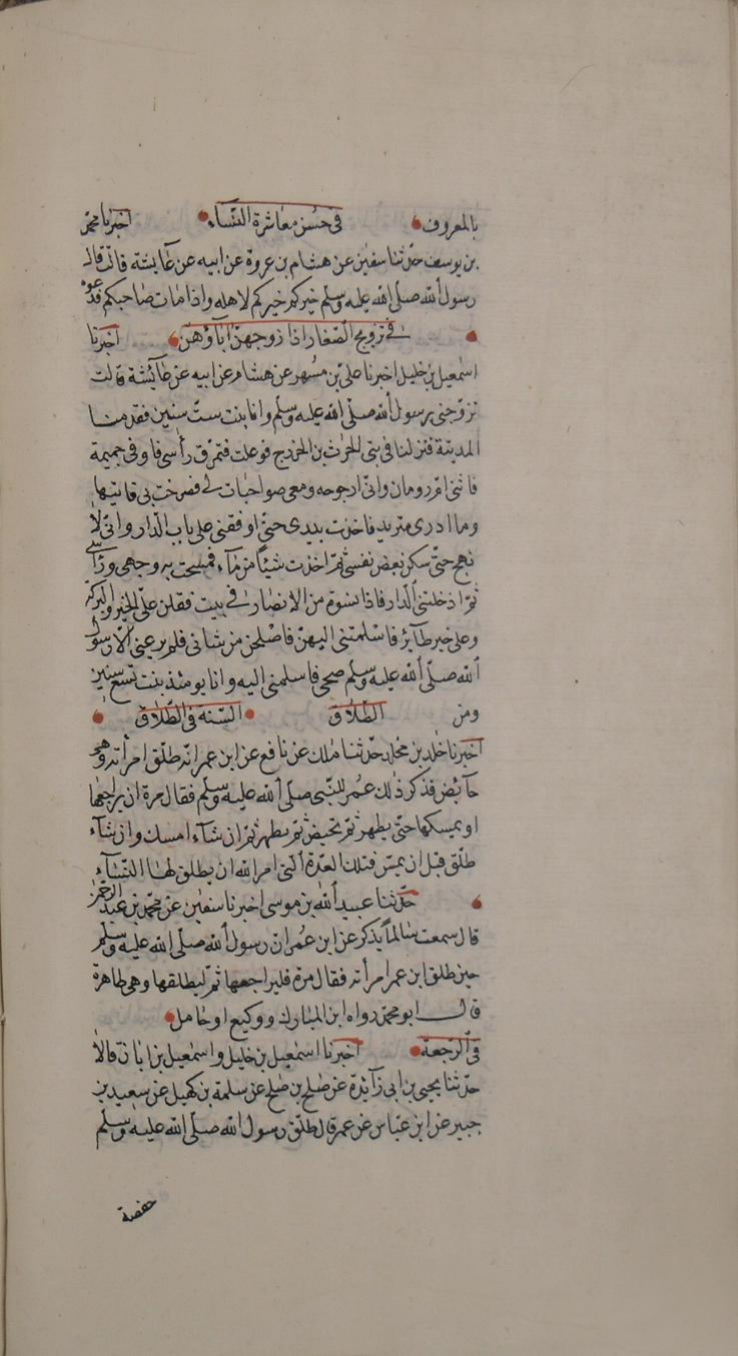 بالمعروف في حسن معاشرة النساء اخبرنا محمد
بن يوسف حدثنا سفين عن هشام بن عروة عن ابيه عن عائشة قالت قال
رسول الله صلى الله عليه وسلم خيركم خيركم لاهله واذا مات صاحبكم فدعوه
في تزويج الصغار اذا زوجهن اباؤهن اخبرنا
اسمعيل بن خليل اخبرنا علي بن مسهر عن هشام عن ابيه عن عائشة قالت
تزوجني رسول الله صلى الله عليه وسلم وانا بنت ست سنين فقدمنا
المدينة فنزلنا في بني الحرث بن الخزرج فوعكت فتمرق رأسي فاوفى جميمة
فاتتني ام رومان واني ارجوحه ومعي صواحبات لي فصرخت بي فاتيتها
وما ادري ما تريد فاخذت بيدي حتى اوقفتني على باب الدار واني لا
نهج حتى سكن بعض نفسي ثم اخذت شيئا من ماء فمسحت به وجهي ورأسي
ثم ادخلتني الدار فاذا نسوة من الانصار في بيت فقلن على الخير والبركة
وعلى خير طائر فاسلمتني اليهن فاصلحن من شاني فلم يرعني الا رسول
الله صلى الله عليه وسلم ضحى فاسلمنني اليه وانا يومئذ بنت تسع سنين
ومن الطلاق السنة في الطلاق
اخبرنا خلد بن مخلد حدثنا ملك عن نافع عن ابن عمر انه طلق امرأته وهي
حائض فذكر ذلك عمر للنبي صلى الله عليه وسلم فقال مره ان يراجعها
او يمسكها حتى يطهر ثم تحيض ثم يطهر ثم ان شاء امسك وان شاء
طلق قبل ان يمس فتلك العدة التي امر الله ان يطلق لها النساء
حدثنا عبيد الله بن موسى اخبرنا سفين عن محمد بن عبد الرحمن
قال سمعت سالما يذكر عن ابن عمر ان رسول الله صلى الله عليه وسلم
حين طلق ابن عمر امرأته فقال مره فليراجعها ثم ليطلقها وهي طاهرة
قال ابو محمد رواه ابن المبارك ووكيع او حامل
في الرجعة اخبرنا اسمعيل بن خليل واسمعيل بن ابان قالا
حدثنا يحيى بن ابي زائدة عن صلح بن صلح عن سلمة بن كهيل عن سعيد بن
جبير عن ابن عباس عن عمر قال طلق رسول الله صلى الله عليه وسلم
حفصة